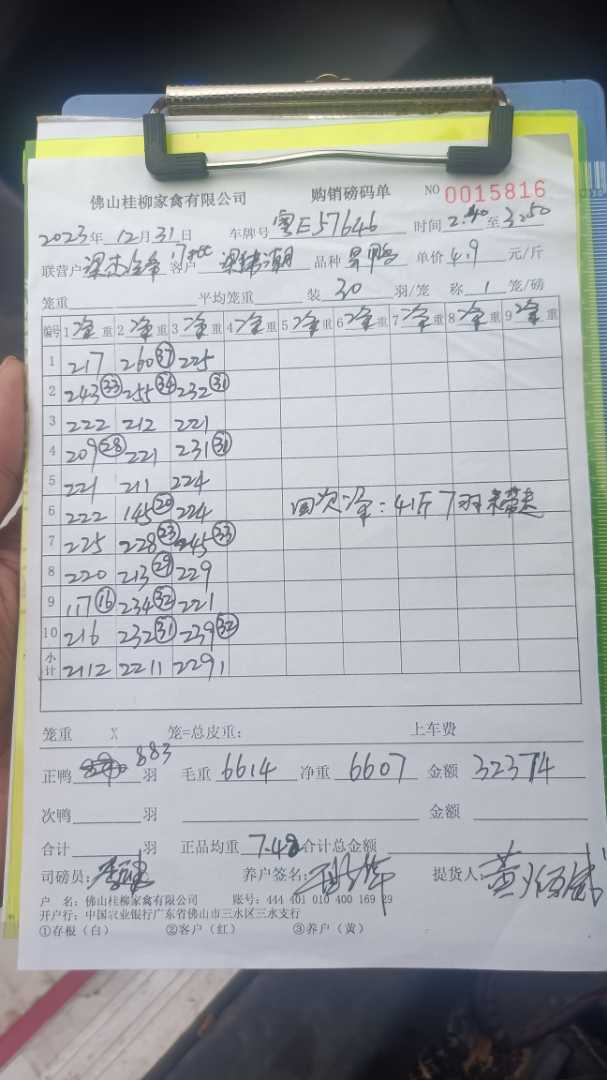 佛山桂柳家禽有限公司 购销磅码单 NO 0015816
2023年 12月 31日 车牌号 粤E57646 时间 2.40 至 3.50
联营户 客户 品种 单价 4.9 元/斤
笼重 平均笼重 装 30 羽/笼 称 1 笼/磅
编号 1 净重 2 净重 3 净重 4 净重 5 净重 6 净重 7 净重 8 净重 9 净重
1 217 260 37 225
2 243 33 255 34 232 31
3 222 212 221
4 209 28 221 231 31
5 221 211 224
6 222 145 20 224 回次净: 41斤 7羽
7 225 228 23 245 33
8 220 213 29 229
9 117 16 234 32 221
10 216 232 31 239 32
小计 2112 2211 2291
笼重 X 笼=总皮重: 上车费
正鸭 883 羽 毛重 6614 净重 6607 金额 32374
次鸭 羽 金额
合计 羽 正品均重 7.48 合计总金额
司磅员: 养户签名: 提货人:
户 名: 佛山桂柳家禽有限公司 账号: 444 401 010 400 169 29
开户行: 中国农业银行广东省佛山市三水区三水支行
①存根(白) ②客户(红) ③养户(黄)